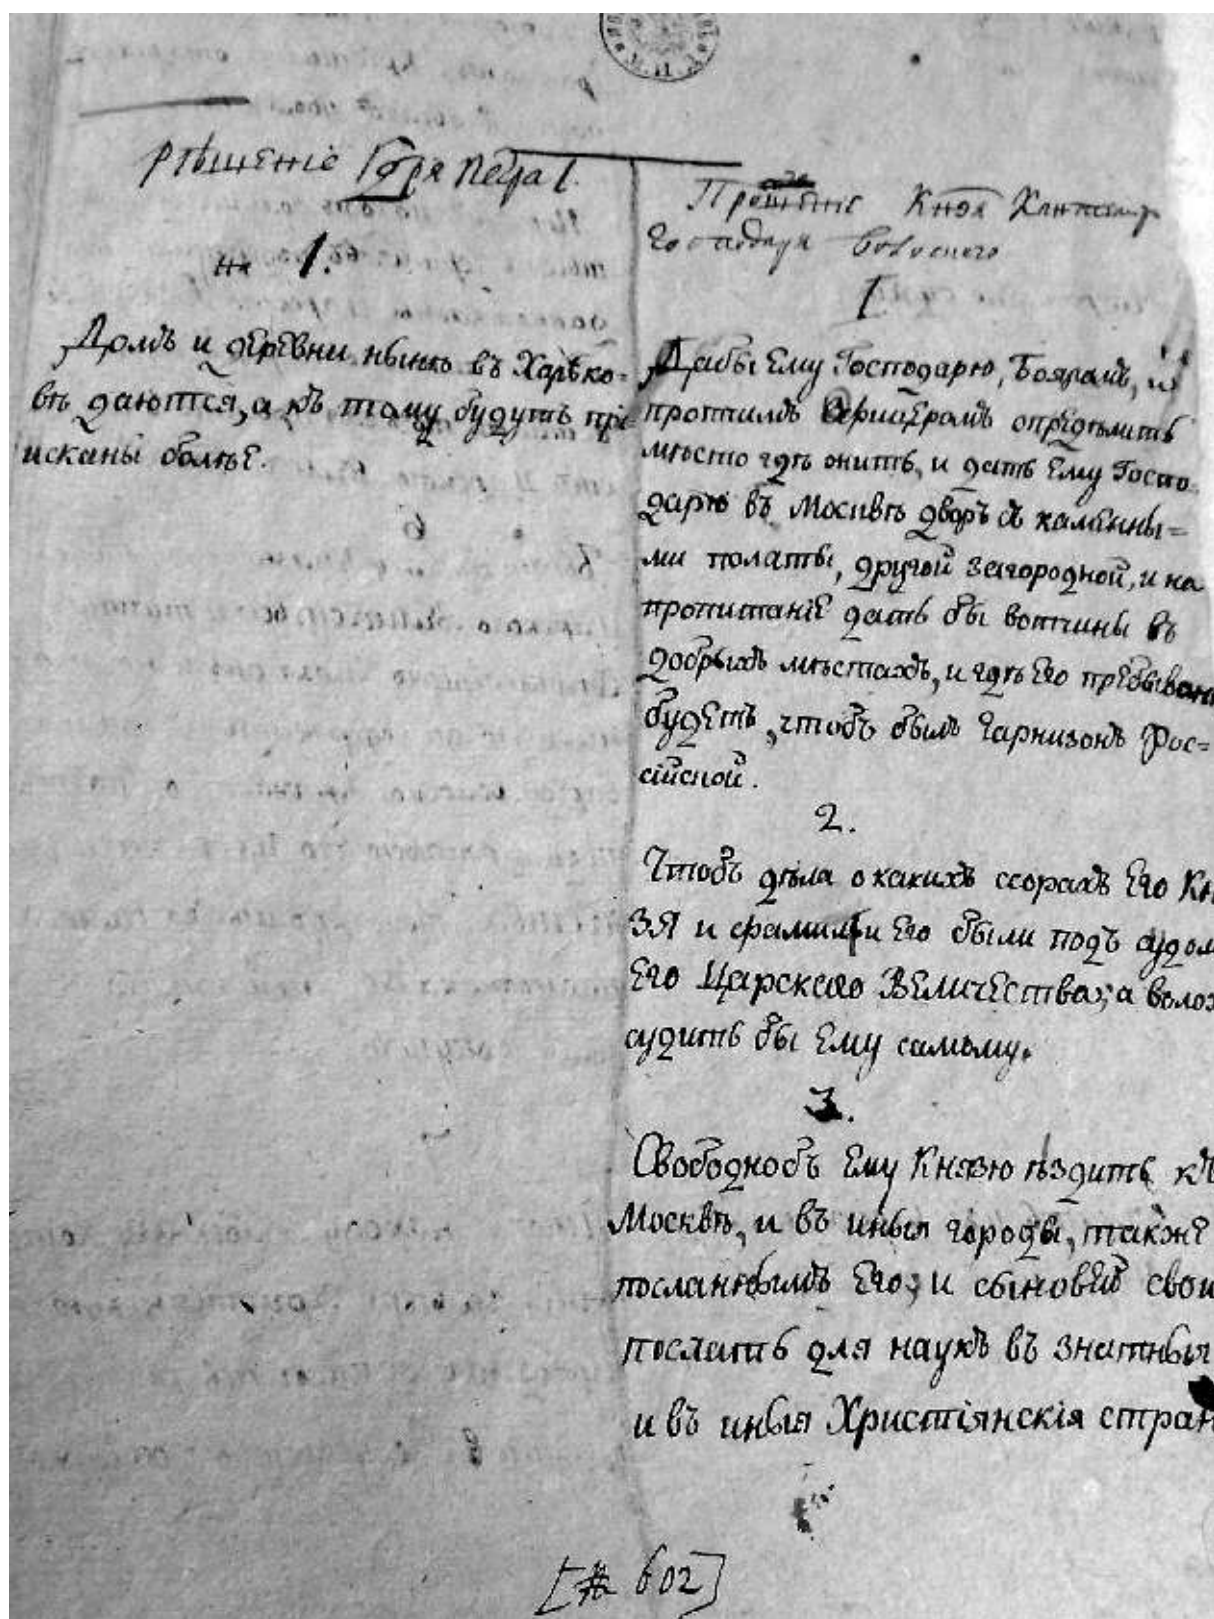 рѣшеніе Гдря Петра I.
на 1.
Домъ и деревни нынѣ въ Харько-
вѣ даются, а къ тому будутъ прі-
исканы болѣе.
Прошеніе Князя Кантемир
Господаря Волоского
1
Дабы Ему Господарю, Боярамъ, и
протчимъ Афицерамъ опредѣлить
мѣсто гдѣ жить, и дать Ему Госпо
дарю въ Москвѣ дворъ съ каменны=
ми полаты, другой загородной, и на
пропитаніе дать бы вотчины въ
добрыхъ мѣстахъ, и гдѣ Его пребыван
будетъ, чтобъ былъ гарнизонъ Рос=
сійской.
2.
Чтобъ дѣла о какихъ ссорахъ Его Кн
зя и фамиліи Его были подъ судом
Его Царскаго Величества, а волох
судить бы Ему самому.
3.
Свободнобъ Ему Князю ѣздить къ
Москвѣ, и въ иныя городы, также
посланнымъ Его, и сыновей свои
послать для наукъ въ знатныя
и въ иныя Христіянскія стран
602]